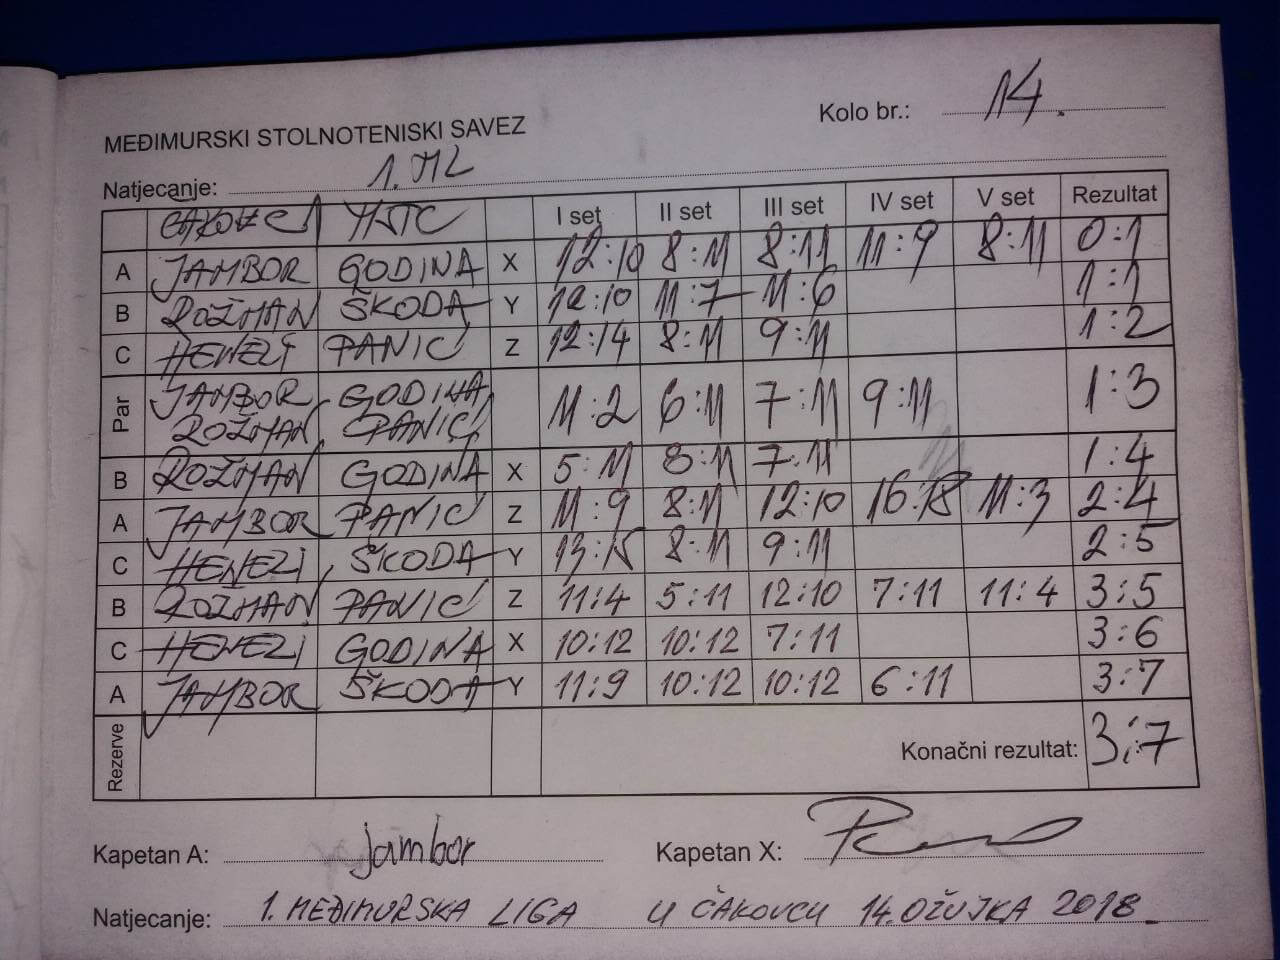 Kolo br.: 14.
MEĐIMURSKI STOLNOTENISKI SAVEZ
Natjecanje: 1. ML
ČAKOVEC 1 MSTC I set II set III set IV set V set Rezultat
A JAMBOR GODINA X 12:10 8:11 8:11 11:9 8:11 0:1
B ROŽMAN ŠKODA Y 12:10 11:7 11:6 1:1
C HENEZI PANIĆ Z 12:14 8:11 9:11 1:2
Par JAMBOR GODINA 11:2 6:11 7:11 9:11 1:3
ROŽMAN PANIĆ
B ROŽMAN GODINA X 5:11 8:11 7:11 1:4
A JAMBOR PANIĆ Z 11:9 8:11 12:10 16:18 11:3 2:4
C HENEZI ŠKODA Y 13:15 8:11 9:11 2:5
B ROŽMAN PANIĆ Z 11:4 5:11 12:10 7:11 11:4 3:5
C HENEZI GODINA X 10:12 10:12 7:11 3:6
A JAMBOR ŠKODA Y 11:9 10:12 10:12 6:11 3:7
Rezerve Konačni rezultat: 3:7
Kapetan A: Jambor Kapetan X:
Natjecanje: 1. MEĐIMURSKA LIGA U ČAKOVCU 14. OŽUJKA 2018.